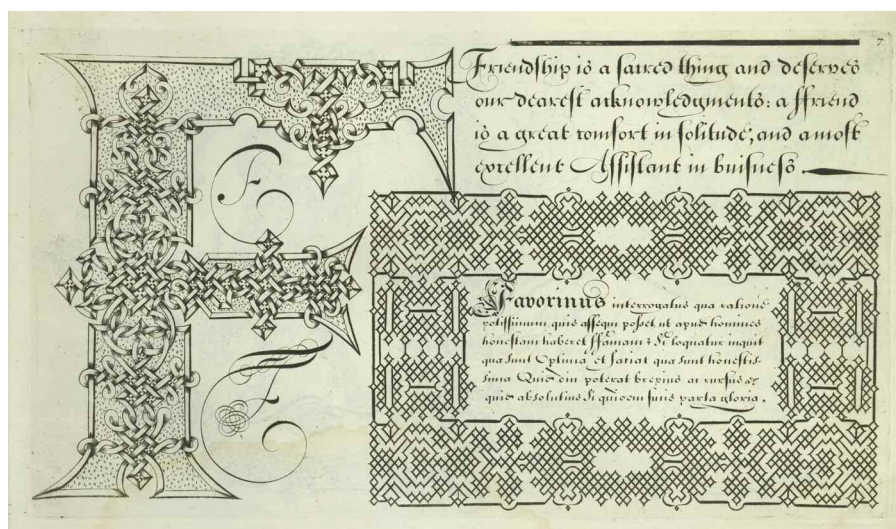 7
Friendship is a sacred thing and deserves
our dearest acknowledgments: a ffriend
is a great comfort in solitude, and a most
excellent Assistant in buisness.
F
F
F
Favorinus interrogatus qua ratione
potissimum quis assequi posset ut apud homines
honestam haberet ffamam? Si loquatur inquit
quæ sunt Optima et faciat quæ sunt honestis-
sima Quid diu poterat brevius ac rursus
quid absolutius Si quidem sutis parta gloria.